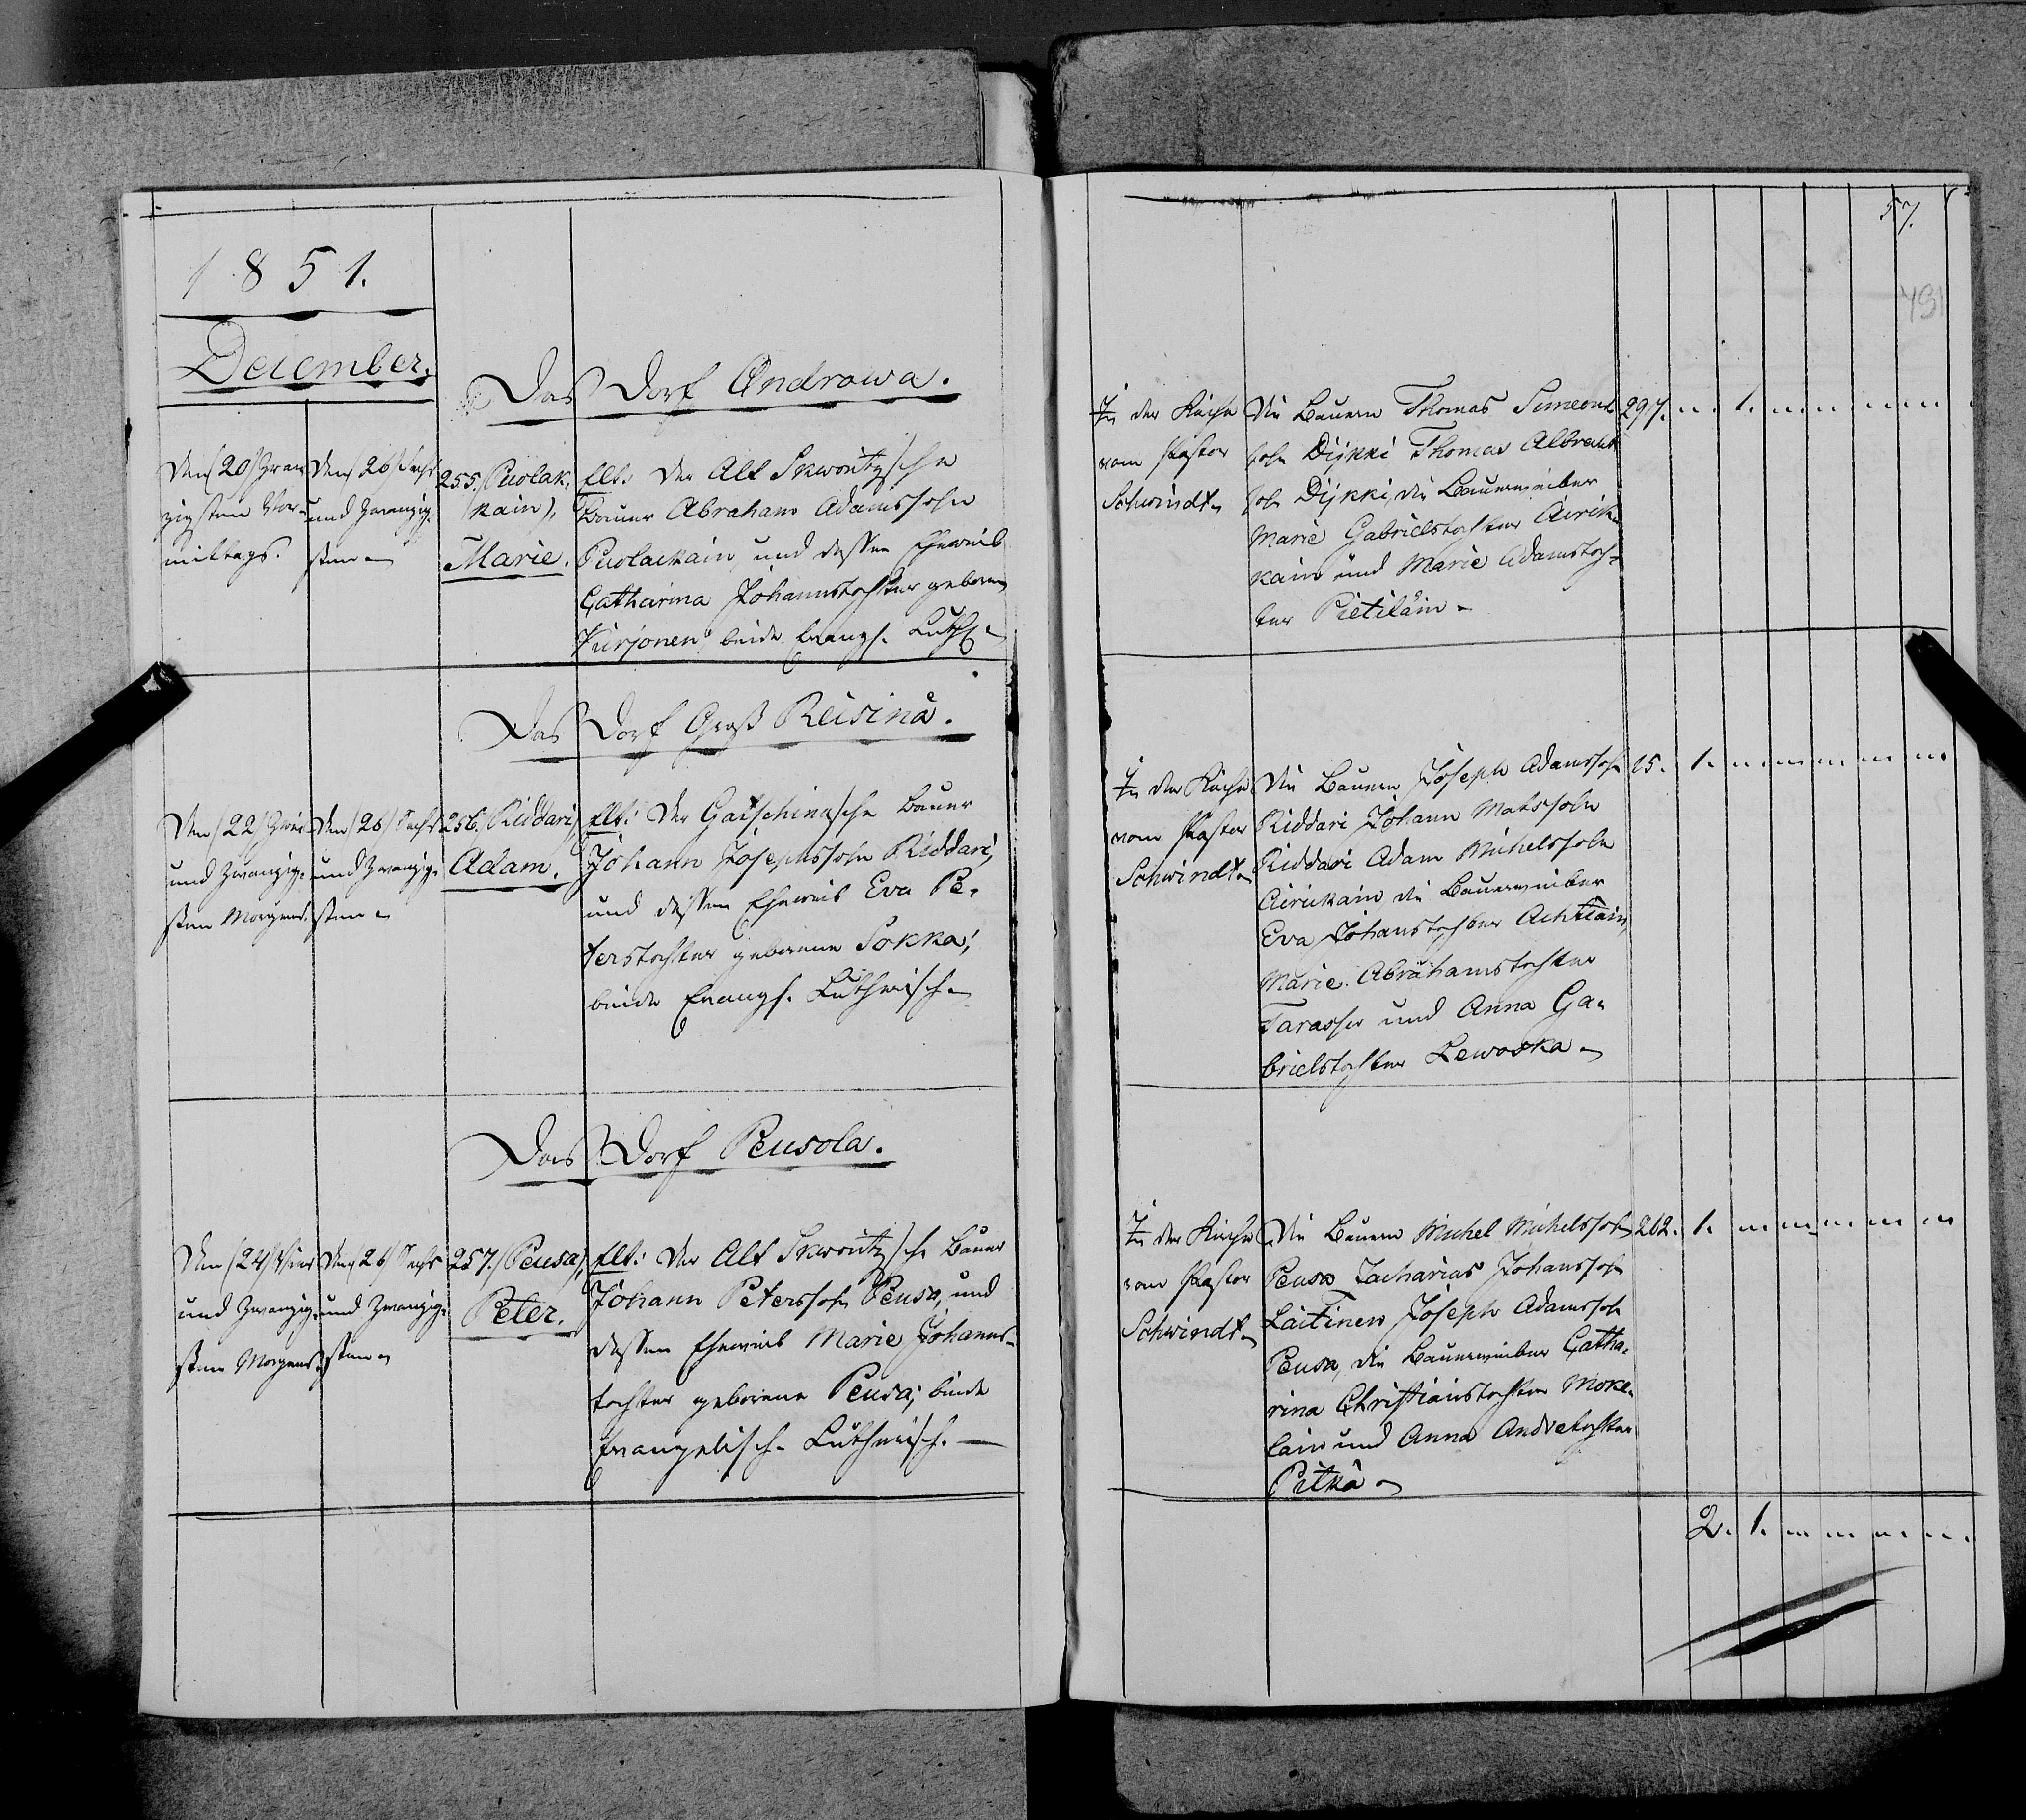 1851.
December.
Das Dorf Androwa.
Den (20) Zwan
zigsten Vor-
mittags.
Den (26) Sechs
und Zwanzig-
sten
255. (Puolak-
kain),
Marie.
Elt: Der Alt Skworitzsche
Bauer Abraham Adamssohn
Puolackain, und dessen Eheweib
Catharina Johannstochter geborne
Kurjonen; beide Evangs. Luth
Das Dorf Groß Reisinä.
Den (22) Zwei
und Zwanzig-
sten Morgens.
Den (26) Sechs
und Zwanzig-
sten
256. (Riddari),
Adam.
Elt: Der Gatschinasche Bauer
Johann Josephssohn Riddari,
und dessen Eheweib Eva Pe-
terstochter geborene Sokka;
beide Evangs. Lutherisch
Das Dorf Peusola.
Den (24) Vier
und Zwanzig-
sten Morgens
Den (26) Sechs
und Zwanzig-
sten
257. (Peusa),
Peter.
Elt: Der Alt Skworitzsche Bauer
Johann Peterssohn Peusa, und
dessen Eheweib Marie Johanns-
tochter geborene Peusa; beide
Evangelisch-Lutherisch.
57.
In der Kirche
vom Pastor
Schwindt
Die Bauern Thomas Simeons
sohn Dijkki Thomas Albrecht
sohn Dijkki, die Bauerweiber
Marie Gabrielstochter Airik-
kain und Marie Adamstoch-
ter Pietiläin
297. 1.
In der Kirche
vom Pastor
Schwindt
Die Bauern Joseph Adamssohn
Riddari Johann Matssohn
Riddari Adam Michelssohn
Airickain die Bauerweiber
Eva Johanstochter Achtiain,
Marie Abrahamstochter
Tarasser und Anna Ga-
brielstochter Lewoska
25. 1.
In der Kirche
vom Pastor
Schwindt
Die Bauern Michel Michelssohn
Peusa Zacharias Johanssohn
Laitinen Joseph Adamssohn
Peusa, die Bauerweiber Catha-
rina Christianstochter Moke-
lain und Anna Andretochter
Pitkä
262. 1.
2. 1.